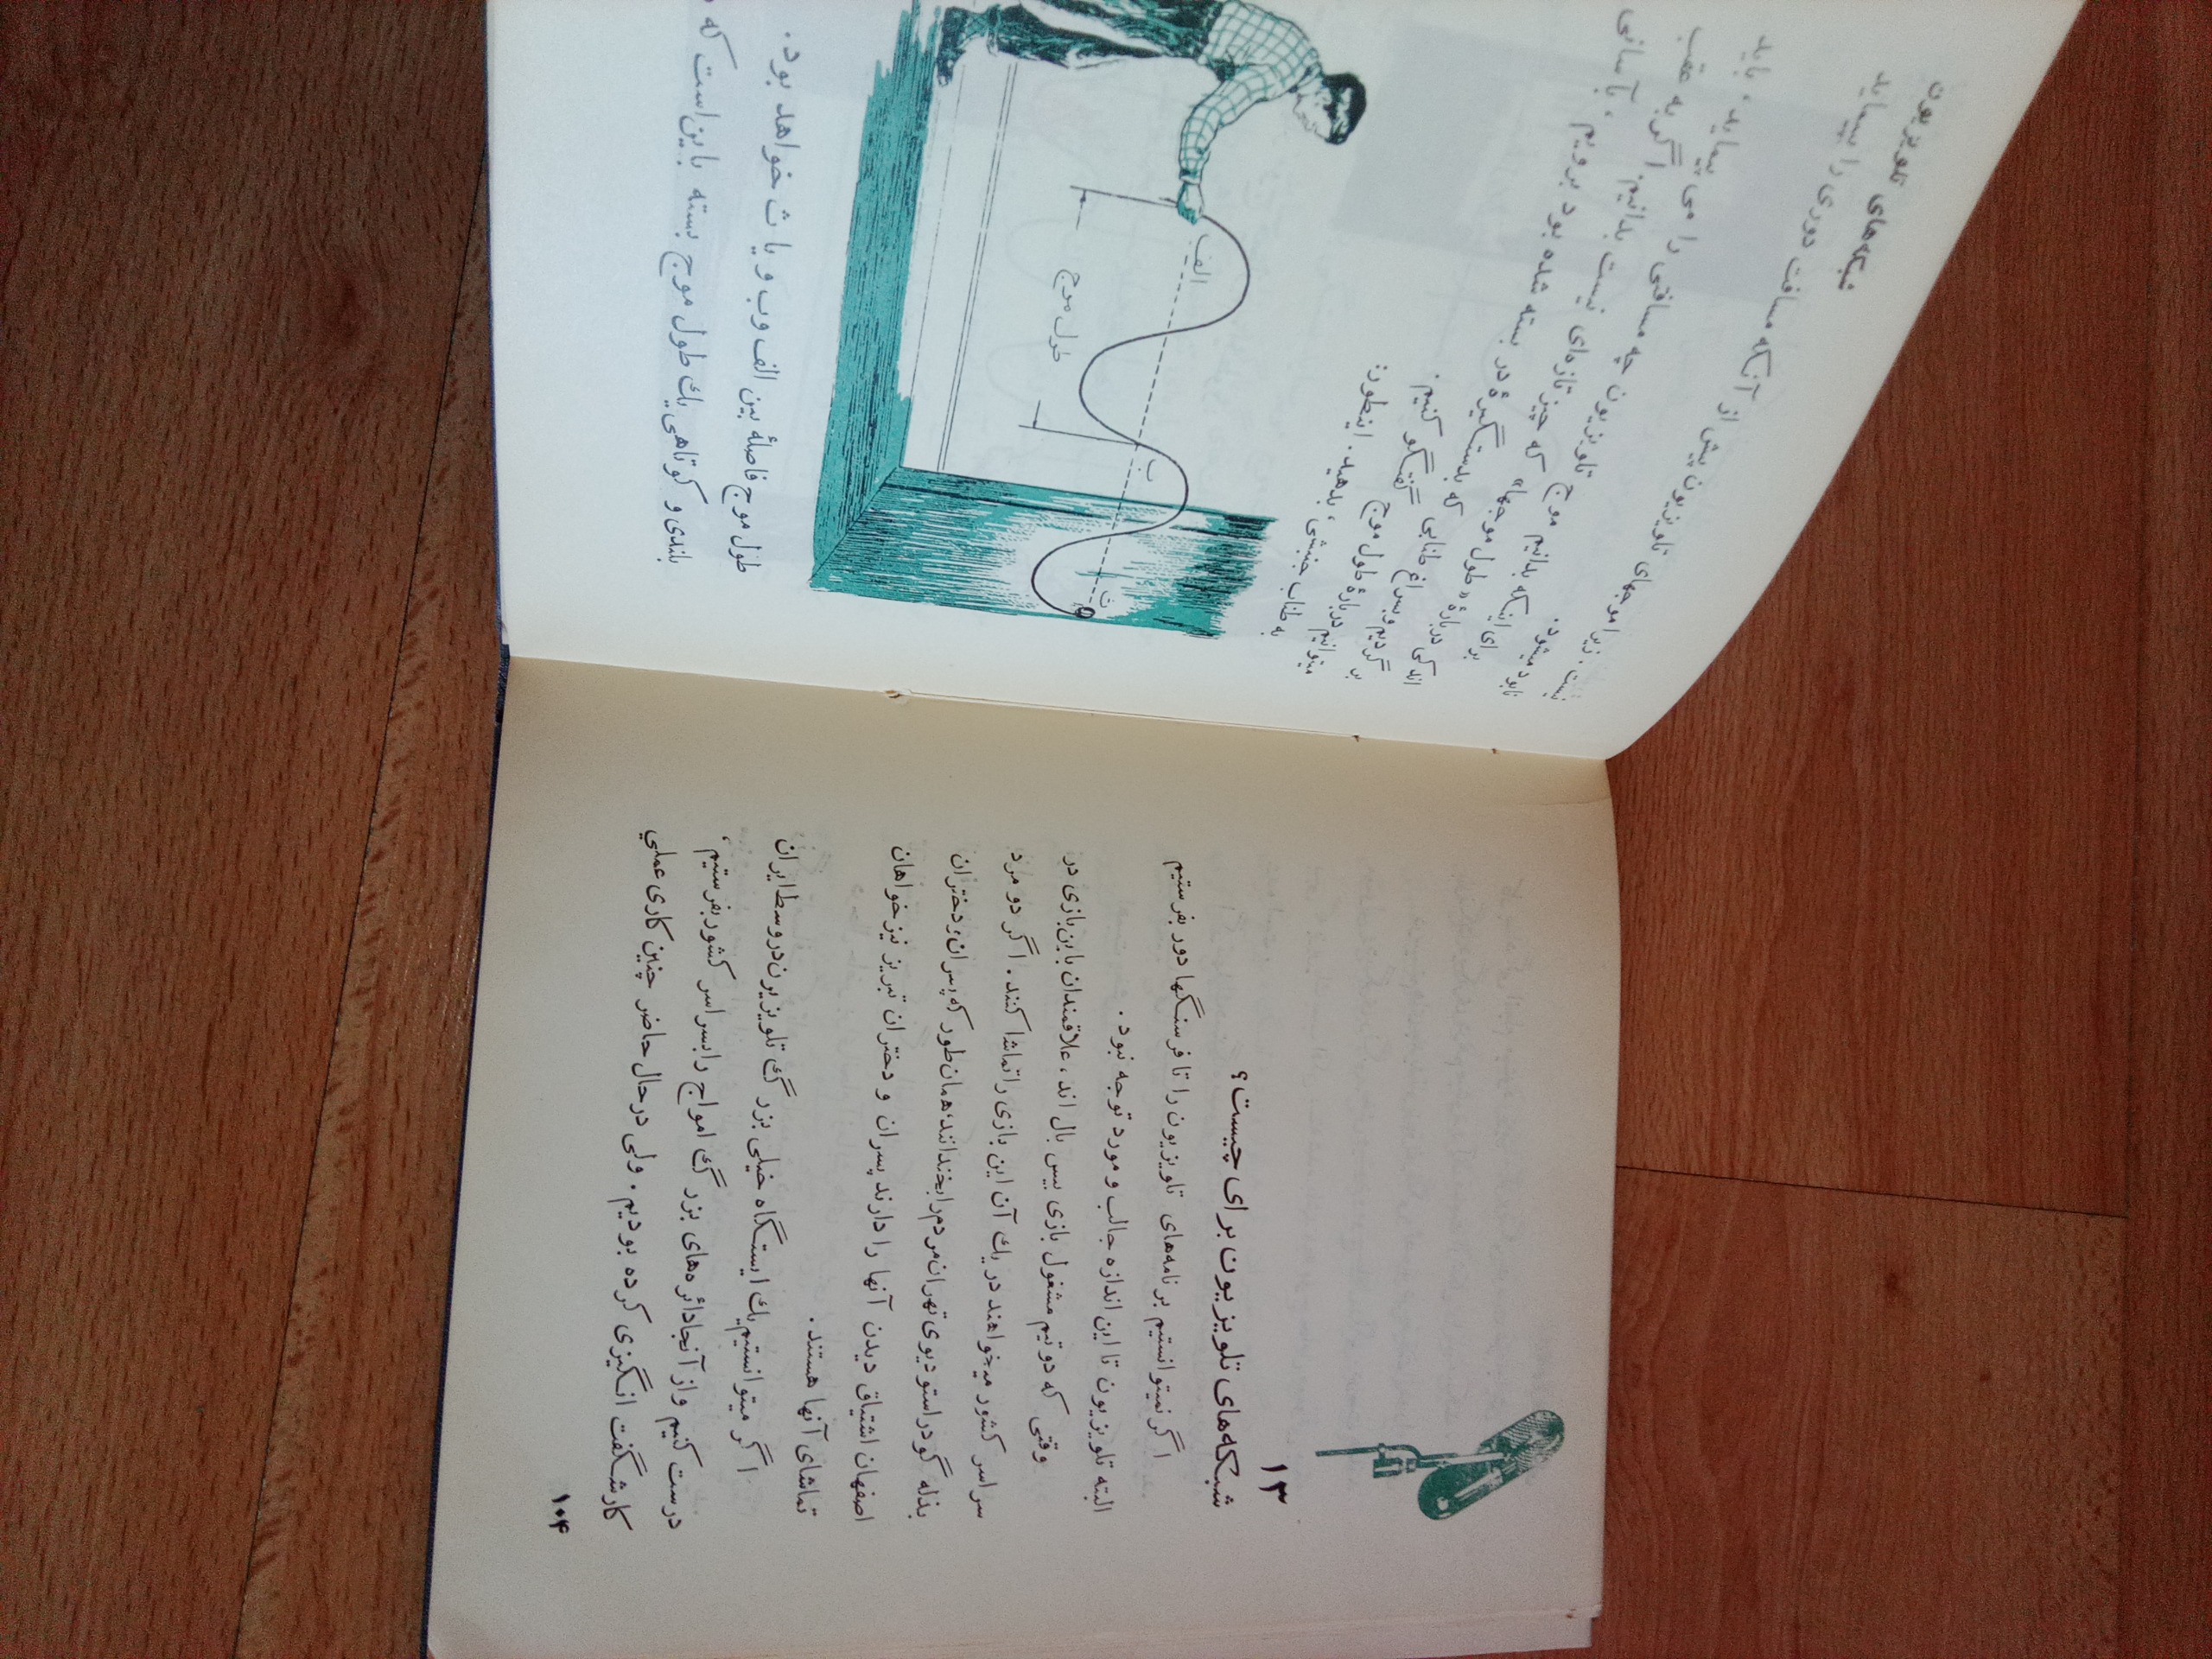 ۱۳
شبکه‌های تلویزیون برای چیست؟
اگر نمیتوانستیم برنامه‌های تلویزیون را تا فرسنگها دور بفرستیم
البته تلویزیون تا این اندازه جالب و مورد توجه نبود.
وقتی که دو تیم مشغول بازی بیس بال اند، علاقمندان باین بازی در
سراسر کشور میخواهند در یك آن این بازی را تماشا کنند. اگر دو مرد
بذله گو در استودیوی تهران مردم را بخندانند، همان طور که پسران و دختران
اصفهان اشتیاق دیدن آنها را دارند پسران و دختران تبریز نیز خواهان
تماشای آنها هستند.
اگر میتوانستیم یك ایستگاه خیلی بزرگ تلویزیون در وسط ایران
درست کنیم و از آنجا دائره‌های بزرگ امواج را بسراسر کشور بفرستیم،
کار شگفت انگیزی کرده بودیم. ولی در حال حاضر چنین کاری عملی
۱۰۴
شبکه‌های تلویزیون
نیست. زیرا موجهای تلویزیون پیش از آنکه مسافت دوری را بپیماید
نابود میشود.
برای اینکه بدانیم موج تلویزیون چه مسافتی را می پیماید، باید
اندکی درباره «طول موجها» که چیز تازه‌ای نیست بدانیم. اگر به عقب
بر گردیم و بسراغ طنابی که بدستگیرهٔ در بسته شده بود برویم، بآسانی
میتوانیم دربارهٔ طول موج گفتگو کنیم.
به طناب جنبشی، بدهید. اینطور:
الف
ب
ث
طول موج
طول موج فاصلهٔ بین الف و ب و یا ث خواهد بود.
بلندی و کوتاهی یك طول موج بسته باین است که